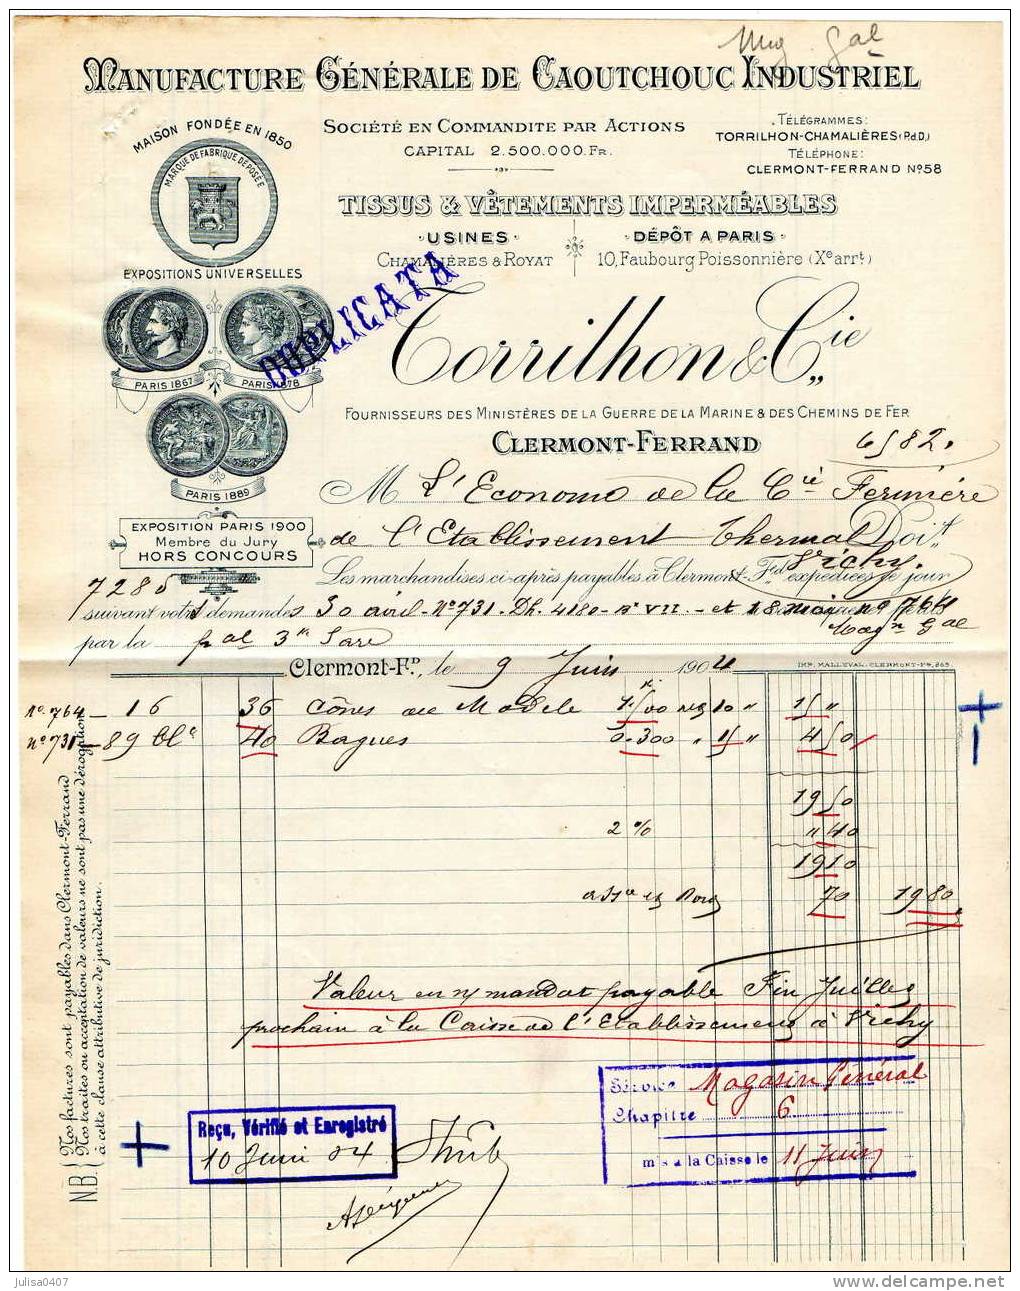 Mag. Gal
MANUFACTURE GÉNÉRALE DE CAOUTCHOUC INDUSTRIEL
MAISON FONDÉE EN 1850
MARQUE DE FABRIQUE DÉPOSÉE
SOCIÉTÉ EN COMMANDITE PAR ACTIONS
CAPITAL 2.500.000 FR.
TÉLÉGRAMMES:
TORRILHON-CHAMALIÈRES (P.d.D.)
TÉLÉPHONE:
CLERMONT-FERRAND No 58
TISSUS & VÊTEMENTS IMPERMÉABLES
USINES
CHAMALIÈRES & ROYAT
DÉPÔT A PARIS
10, Faubourg Poissonnière (Xe arrt)
EXPOSITIONS UNIVERSELLES
DUPLICATA
Torrilhon & Cie
PARIS 1867
PARIS 1878
FOURNISSEURS DES MINISTÈRES DE LA GUERRE DE LA MARINE & DES CHEMINS DE FER
CLERMONT-FERRAND
6582.
PARIS 1889
M L'Econome de la Cie Fermière
EXPOSITION PARIS 1900
Membre du Jury
HORS CONCOURS
de l'Etablissement Thermal Doit
Vichy.
Les marchandises ci-après payables à Clermont-Fd expédiées ce jour
7285
suivant votre demande 30 avril - No 731 - Dh. 4180 - B VII - et 18 mai No 764
Magn Gal
par la
Clermont-Fd, le 9 Juin 1904
IMP. MALLEVAL. CLERMONT-Fd, 265.
No 764 - 16 36 Cônes au Modèle 10 " 15 "
No 731 - 89 40 Bagues 0.300 " 15 " 4 50
19 50
2 % " 40
19 10
70 19 80
Valeur en n/ mandat payable Fin Juillet
prochain à la Caisse de l'Etablissement à Vichy
N.B. Nos factures sont payables dans Clermont-Ferrand
Nos traites ou acceptation de valeurs ne sont pas une dérogation
à cette clause attributive de juridiction.
Service Magasin Général
Chapitre 6
mis à la Caisse le 11 Juin
Reçu, Vérifié et Enregistré
10 Juin 04
julisa0407
www.delcampe.net